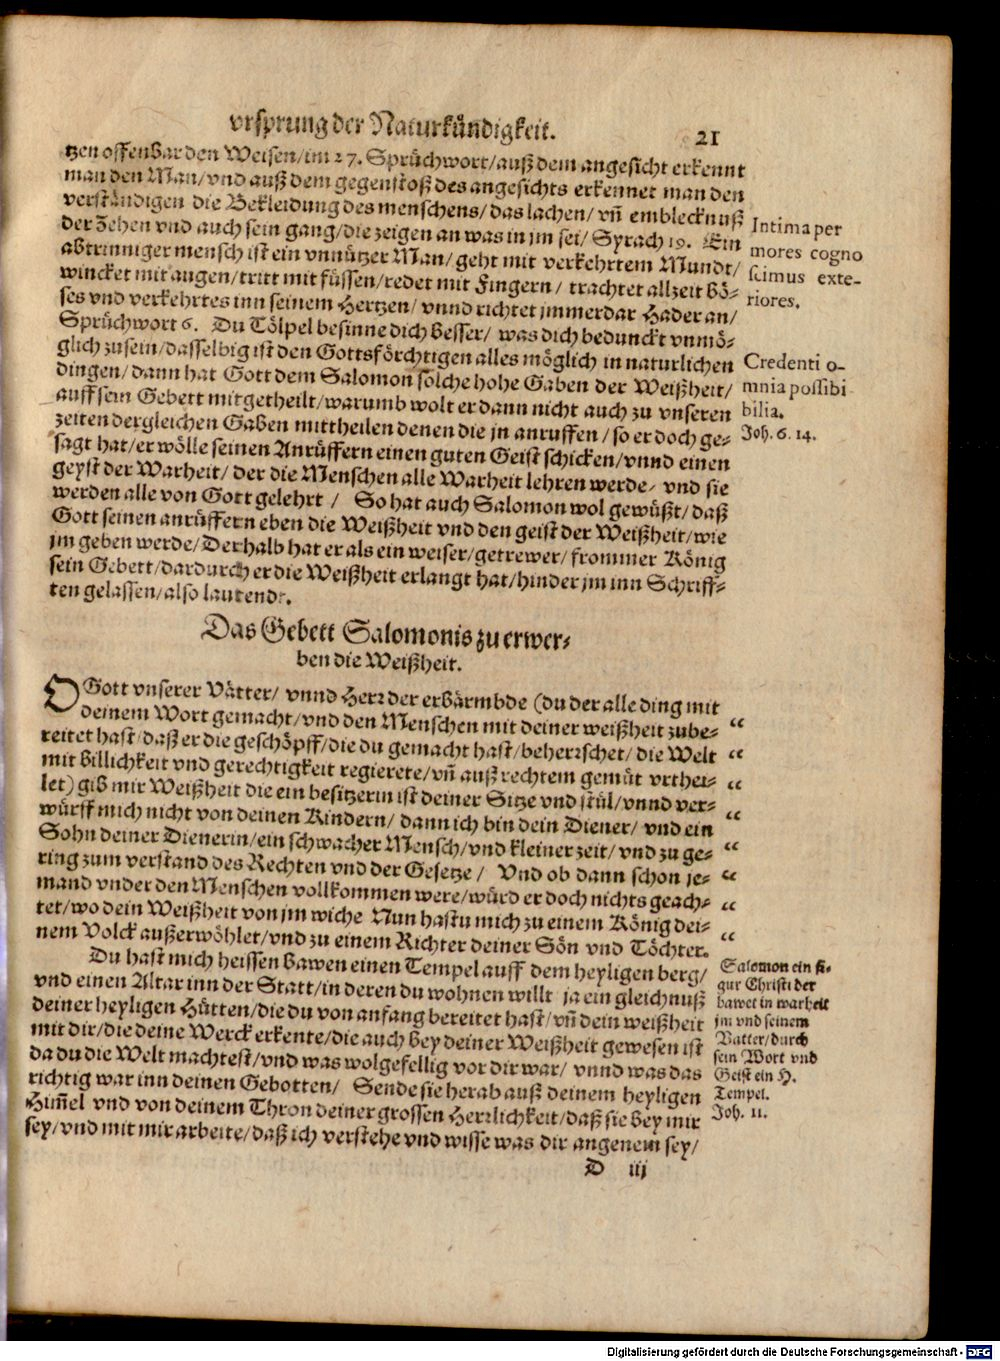 vrsprung der Naturkündigkeit. 21
tzen offenbar den Weisen/im 27. Sprüchwort/auß dem angesicht erkennt
man den Man/vnd auß dem gegenstoß des angesichts erkennet man den
verständigen die Bekleidung des menschens/ das lachen/ vn̄ emblecknuß
der Zehen vnd auch sein gang/die zeigen an was in jm sei/ Syrach 19. Ein
abtrinniger mensch ist ein vnnützer Man/ geht mit verkehrtem Mundt/
wincket mit augen/tritt mit füssen/redet mit Fingern/ trachtet allzeit bö-
ses vnd verkehrtes inn seinem Hertzen/ vnnd richtet jmmerdar Hader an/
Sprüchwort 6. Du Tölpel besinne dich besser/ was dich bedunckt vnmö-
glich zu sein/dasselbig ist den Gottsförchtigen alles möglich in naturlichen
dingen/ dann hat Gott dem Salomon solche hohe Gaben der Weißheit/
auff sein Gebett mitgetheilt/warumb wolt er dann nicht auch zu vnseren
zeiten dergleichen Gaben mittheilen denen die jn anruffen/ so er doch ge-
sagt hat/er wölle seinen Anrüffern einen guten Geist schicken/vnnd einen
geyst der Warheit/ der die Menschen alle Warheit lehren werde/ vnd sie
werden alle von Gott gelehrt/ So hat auch Salomon wol gewüßt/ daß
Gott seinen anrüffern eben die Weißheit vnd den geist der Weißheit/wie
jm geben werde/Derhalb hat er als ein weiser/getrewer/ frommer König
sein Gebett/dardurch er die Weißheit erlangt hat/hinder jm inn Schriff-
ten gelassen/also lautende.
Intima per
mores cogno
scimus exte-
riores.
Credenti o-
mnia possibi
bilia.
Joh. 6. 14.
Das Gebett Salomonis zu erwer-
ben die Weißheit.
O Gott vnserer Vätter/ vnnd Herr der erbärmbde (du der alle ding mit
deinem Wort gemacht/vnd den Menschen mit deiner weißheit zube- “
reitet hast/daß er die geschöpff/die du gemacht hast/beherrschet/ die Welt “
mit billichkeit vnd gerechtigkeit regierete/vn̄ auß rechtem gemüt vrthei- “
let) gib mir Weißheit die ein besitzerin ist deiner Sitze vnd stül/vnnd ver-
würff mich nicht von deinen Kindern/ dann ich bin dein Diener/ vnd ein “
Sohn deiner Dienerin/ein schwacher Mensch/vnd kleiner zeit/ vnd zu ge- “
ring zum verstand des Rechten vnd der Gesetze/ Vnd ob dann schon je- “
mand vnder den Menschen vollkommen were/würd er doch nichts geach- “
tet/wo dein Weißheit von jm wiche Nun hastu mich zu einem König dei-
nem Volck außerwöhlet/vnd zu einem Richter deiner Sön vnd Töchter. “
Du hast mich heissen bawen einen Tempel auff dem heyligen berg/
vnd einen Altar inn der Statt/in deren du wohnen willt ja ein gleichnuß
deiner heyligen Hütten/die du von anfang bereitet hast/vn̄ dein weißheit
mit dir/die deine Werck erkente/die auch bey deiner Weißheit gewesen ist
da du die Welt machtest/vnd was wolgefellig vor dir war/ vnnd was das
richtig war inn deinen Gebotten/ Sende sie herab auß deinem heyligen
Him̄el vnd von deinem Thron deiner grossen Herrlichkeit/daß sie bey mir
sey/vnd mit mir arbeite/daß ich verstehe vnd wisse was dir angenem sey/
Salomon ein fi-
gur Christi der
bawet in warheit
jm vnd seinem
Vatter/durch
sein Wort vnd
Geist ein H.
Tempel.
Joh. 11.
D iij
Digitalisierung gefördert durch die Deutsche Forschungsgemeinschaft - DFG